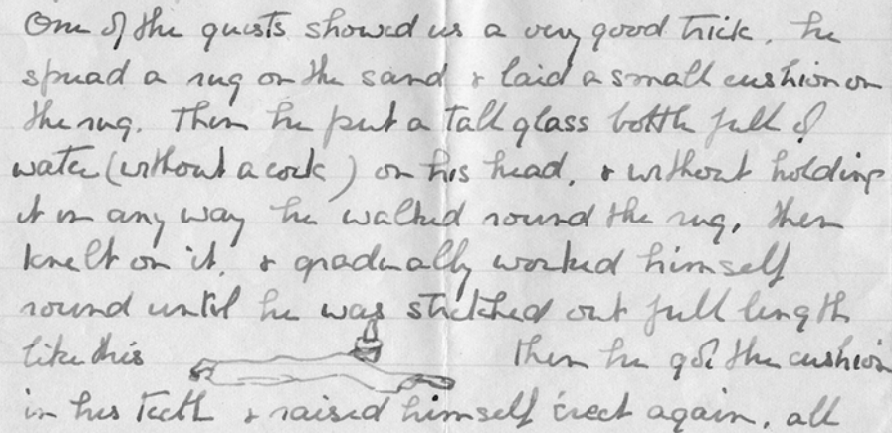 One of the guests showed us a very good trick. he
spread a rug on the sand & laid a small cushion on
the rug. Then he put a tall glass bottle full of
water (without a cork) on his head, & without holding
it in any way he walked round the rug, then
knelt on it, & gradually worked himself
round until he was stretched out full length
like this Then he got the cushion
in his teeth & raised himself erect again, all